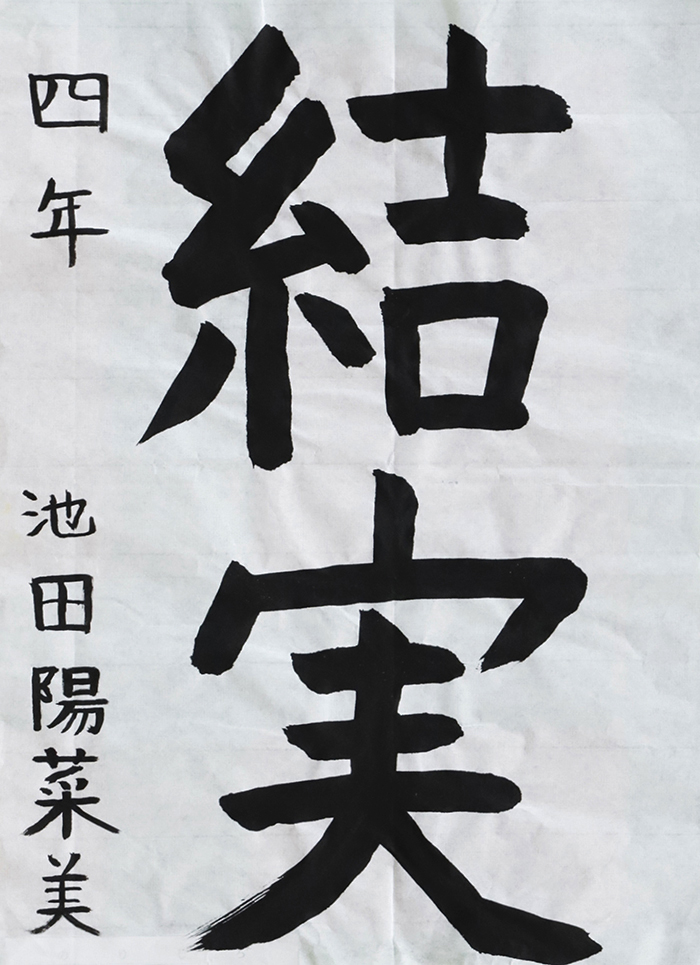 結実
四年 池田陽菜美